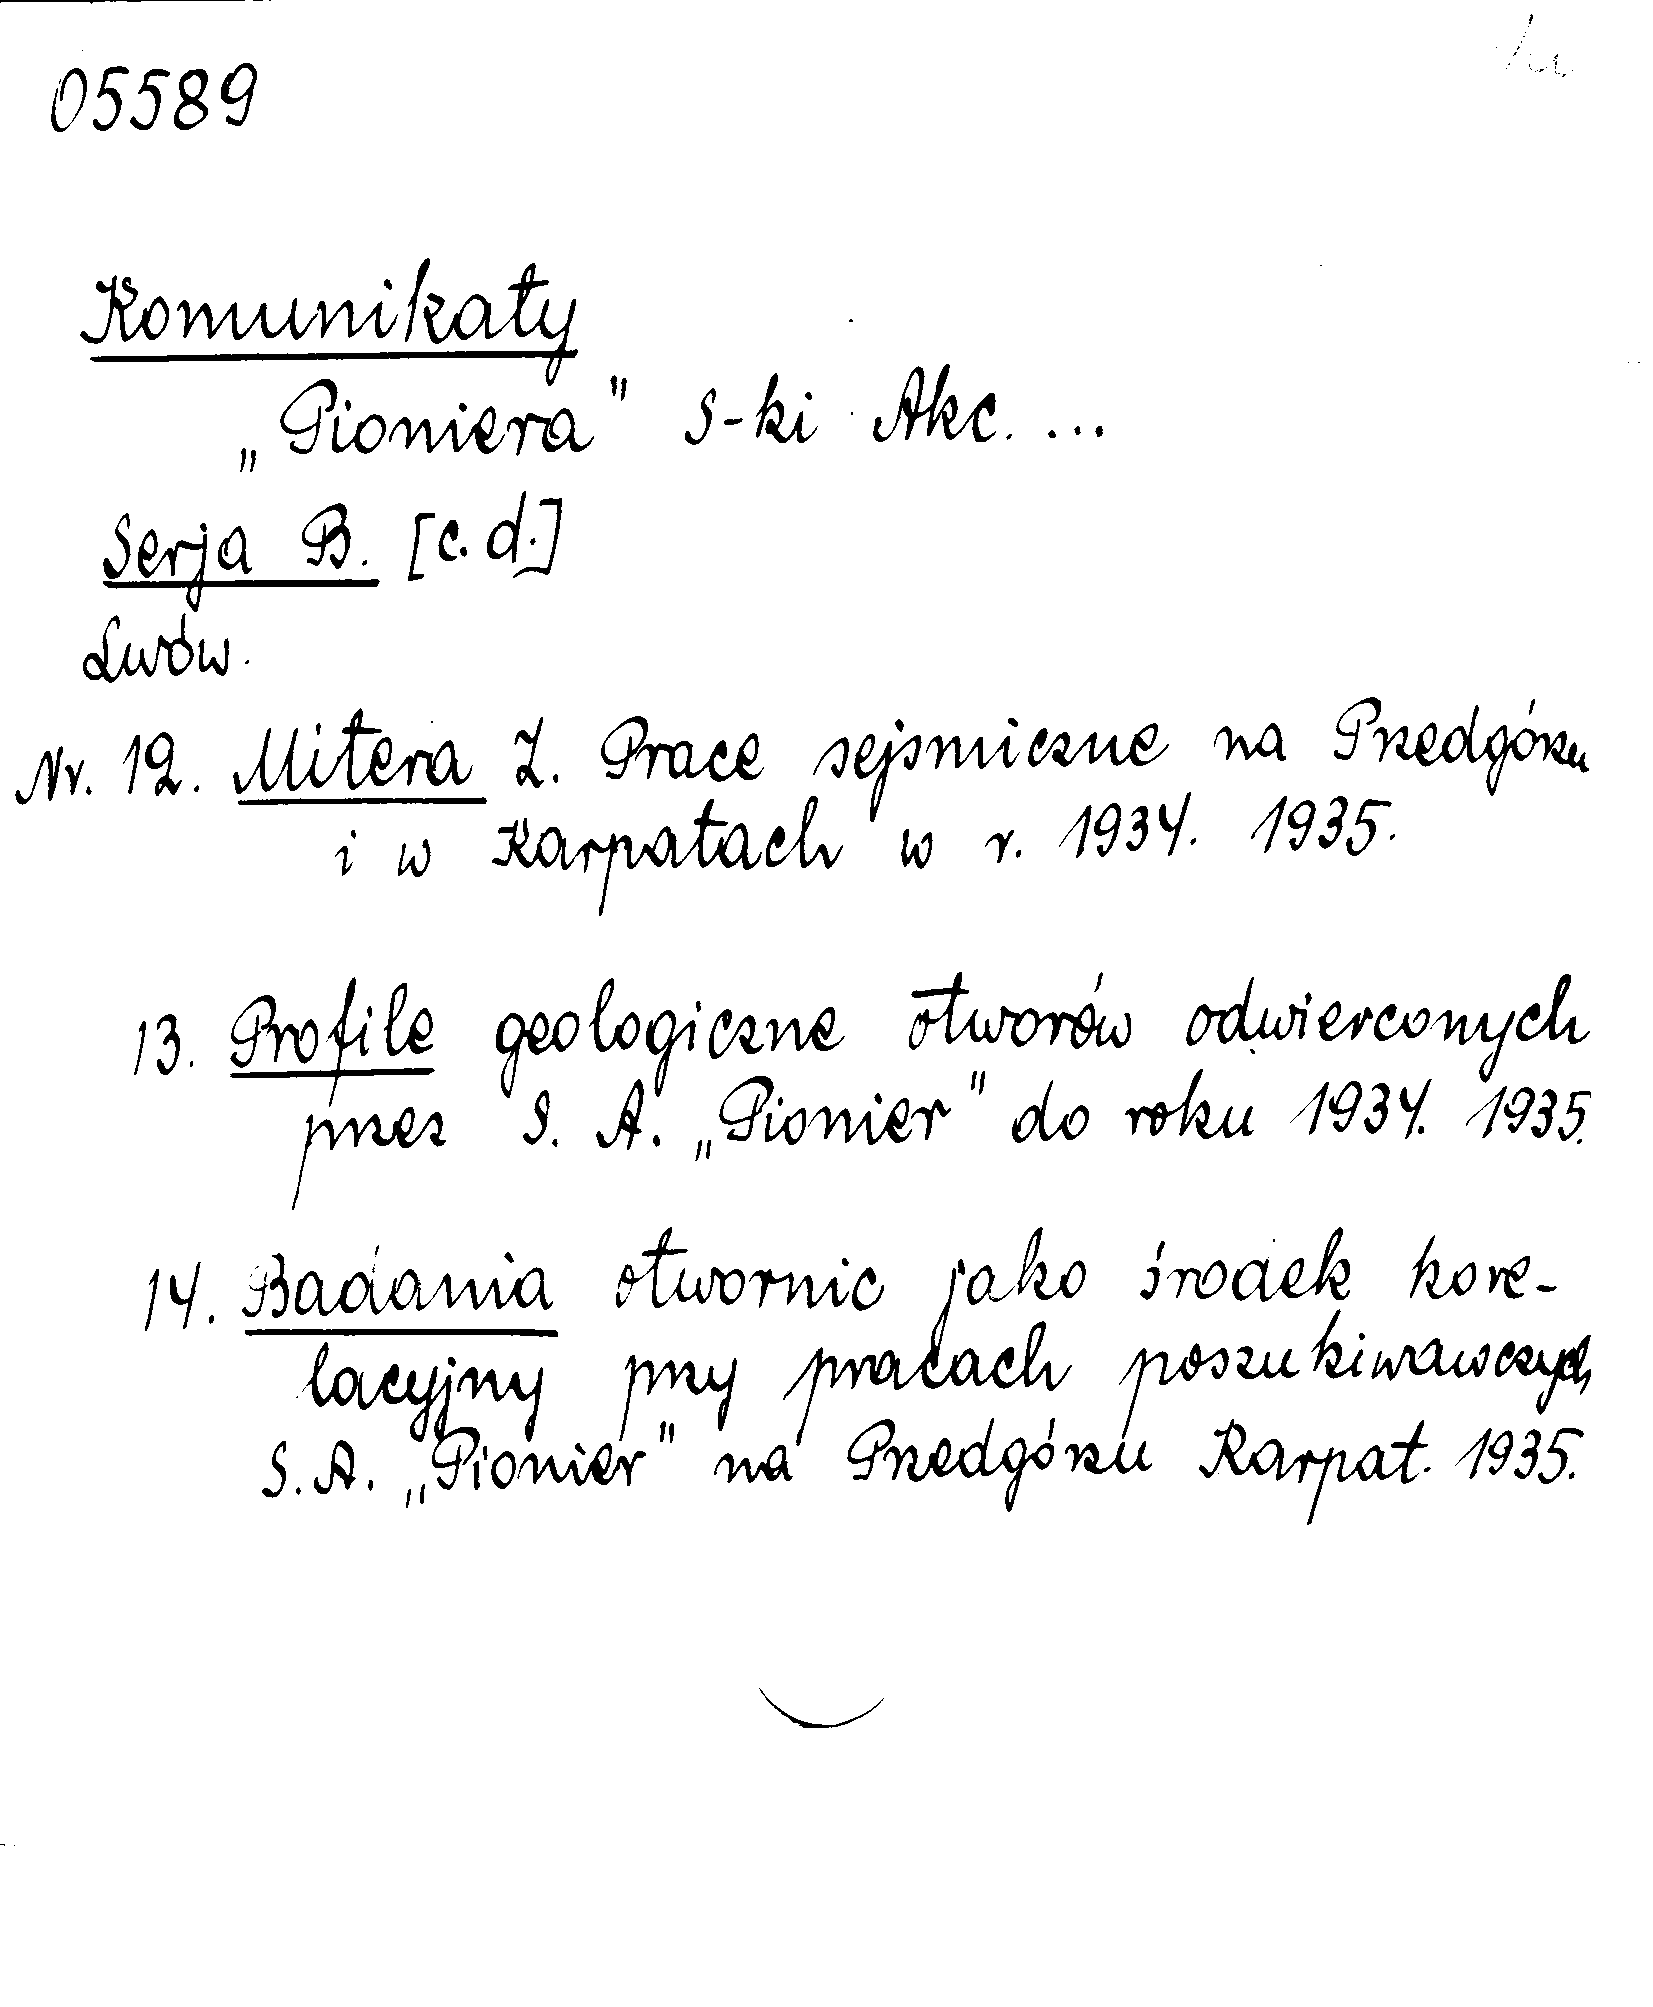 05589
Komunikaty
„Pioniera” S-ki Akc. ...
Serja B. [c.d.]
Lwów.
Nr. 12. Mitera Z. Prace sejsmiczne na Przedgórzu
i w Karpatach w r. 1934. 1935.
13. Profile geologiczne otworów odwierconych
przez S. A. „Pionier” do roku 1934. 1935.
14. Badania otwornic jako środek kore-
lacyjny przy pracach poszukiwawczych
S.A. „Pionier” na Przedgórzu Karpat. 1935.